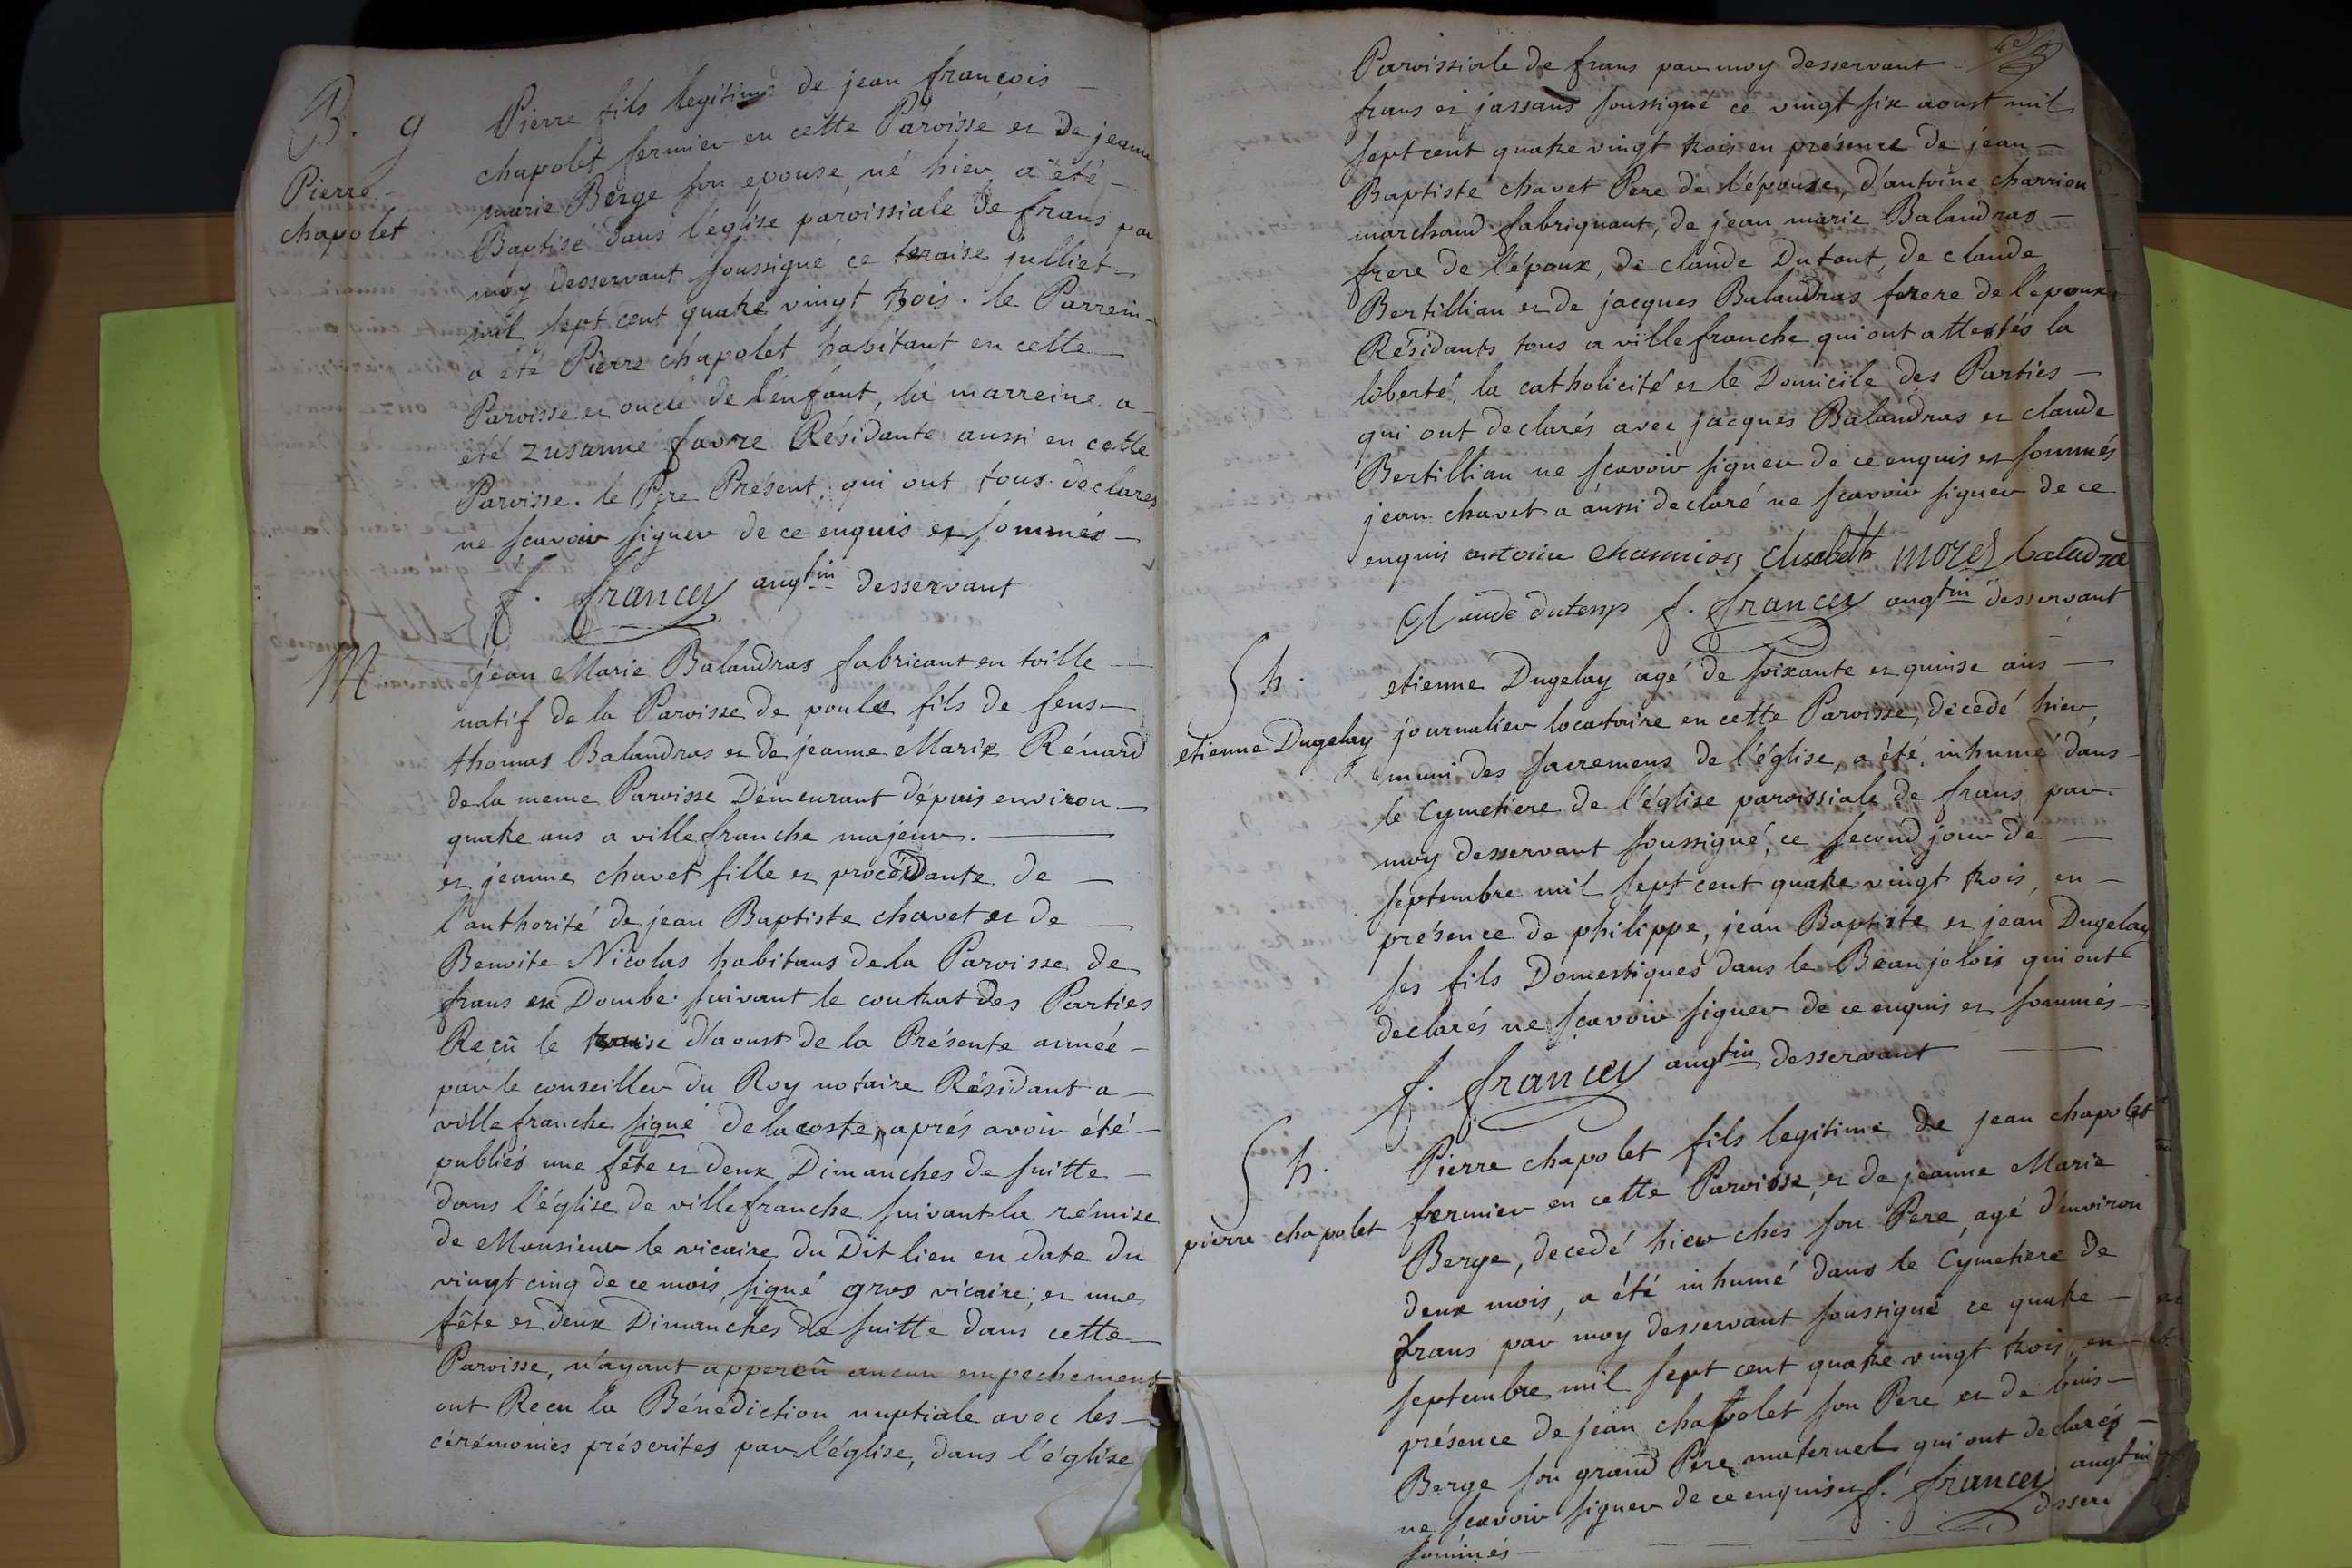 B. g
Pierre
chapolet
Pierre fils legitime de jean françois
chapolet fermier en cette Paroisse et de jeanne
marie Berge son epouse, né hier a été
Baptisé dans l'église paroissiale de frans par
moy desservant soussigné ce traise julliet
mil sept cent quatre vingt trois. le Parrein
a été Pierre chapolet habitant en cette
Paroisse et oncle de l'enfant, la marreine a
été zusanne favre Résidante aussi en cette
Paroisse. le Pere Présent, qui ont tous declarés
ne scavoir signer de ce enquis et sommés
f. francey augtin desservant
M
jean Marie Balandras fabricant en toille
natif de la Paroisse de poule fils de feus
thomas Balandras et de jeanne Marie Rénard
de la meme Paroisse Demeurant dépuis environ
quatre ans a villefranche majeur.
et jeanne chavet fille et procédante de
l'authorité de jean Baptiste chavet et de
Benoite Nicolas habitans de la Paroisse de
frans en Dombe suivant le contrat des Parties
Reçû le traise d'aoust de la Présente anneé
par le conseiller du Roy notaire Résidant a
villefranche signé delacoste, aprés avoir été
publiés une fête et deux Dimanches de suitte
dans l'église de villefranche suivant la rémise
de Monsieur le vicaire du Dit lieu en date du
vingt cinq de ce mois, signé gros vicaire; et une
fête et deux Dimanches de suitte dans cette
Paroisse, n'ayant apperçû aucun empechement
ont Reçu la Bénédiction nuptiale avec les
cérémonies préscrites par l'église, dans l'église
Paroissiale de frans par moy desservant
frans et jassans soussigné ce vingt six aoust mil
sept cent quatre vingt trois en présence de jean
Baptiste chavet Pere de l'épouse, d'antoine charrion
marchand fabriquant, de jean marie Balandras
frere de l'époux, de claude Dutant, de claude
Bertillian et de jacques Balandras frere de l'époux
Résidants tous a villefranche qui ont attestés la
loberté, la catholicité et le Domicile des Parties
qui ont declarés avec jacques Balandras et claude
Bertillian ne scavoir signer de ce enquis et sommés
jean chavet a aussi declaré ne scavoir signer de ce
enquis antoine charrion Elisabeth morel baladra
Claude dutemp f. francey augtin desservant
Sh.
etienne Dugelay
etienne Dugelay agé de soixante et quinse ans
journalier locataire en cette Paroisse, décedé hier,
muni des sacremens de l'église, a été inhumé dans
le Cymetiere de l'église paroissiale de frans par
moy desservant soussigné, ce second jour de
septembre mil sept cent quatre vingt trois, en
présence de philippe, jean Baptiste et jean Dugelay
ses fils Domestiques dans le Beaujolois qui ont
declarés ne scavoir signer de ce enquis et sommés
f. francey augtin desservant
Sh.
pierre chapolet
Pierre chapolet fils legitime de jean chapolet
fermier en cette Paroisse, et de jeanne Marie
Berge, decedé hier ches son Pere, agé d'environ
deux mois, a été inhumé dans le Cymetiere de
frans par moy desservant soussigné ce quatre
septembre mil sept cent quatre vingt trois, en
présence de jean chapolet son Pere et de
Berge son grand Pere maternel qui ont declarés
ne scavoir signer de ce enquis et f. francey augtin
sommés desserv